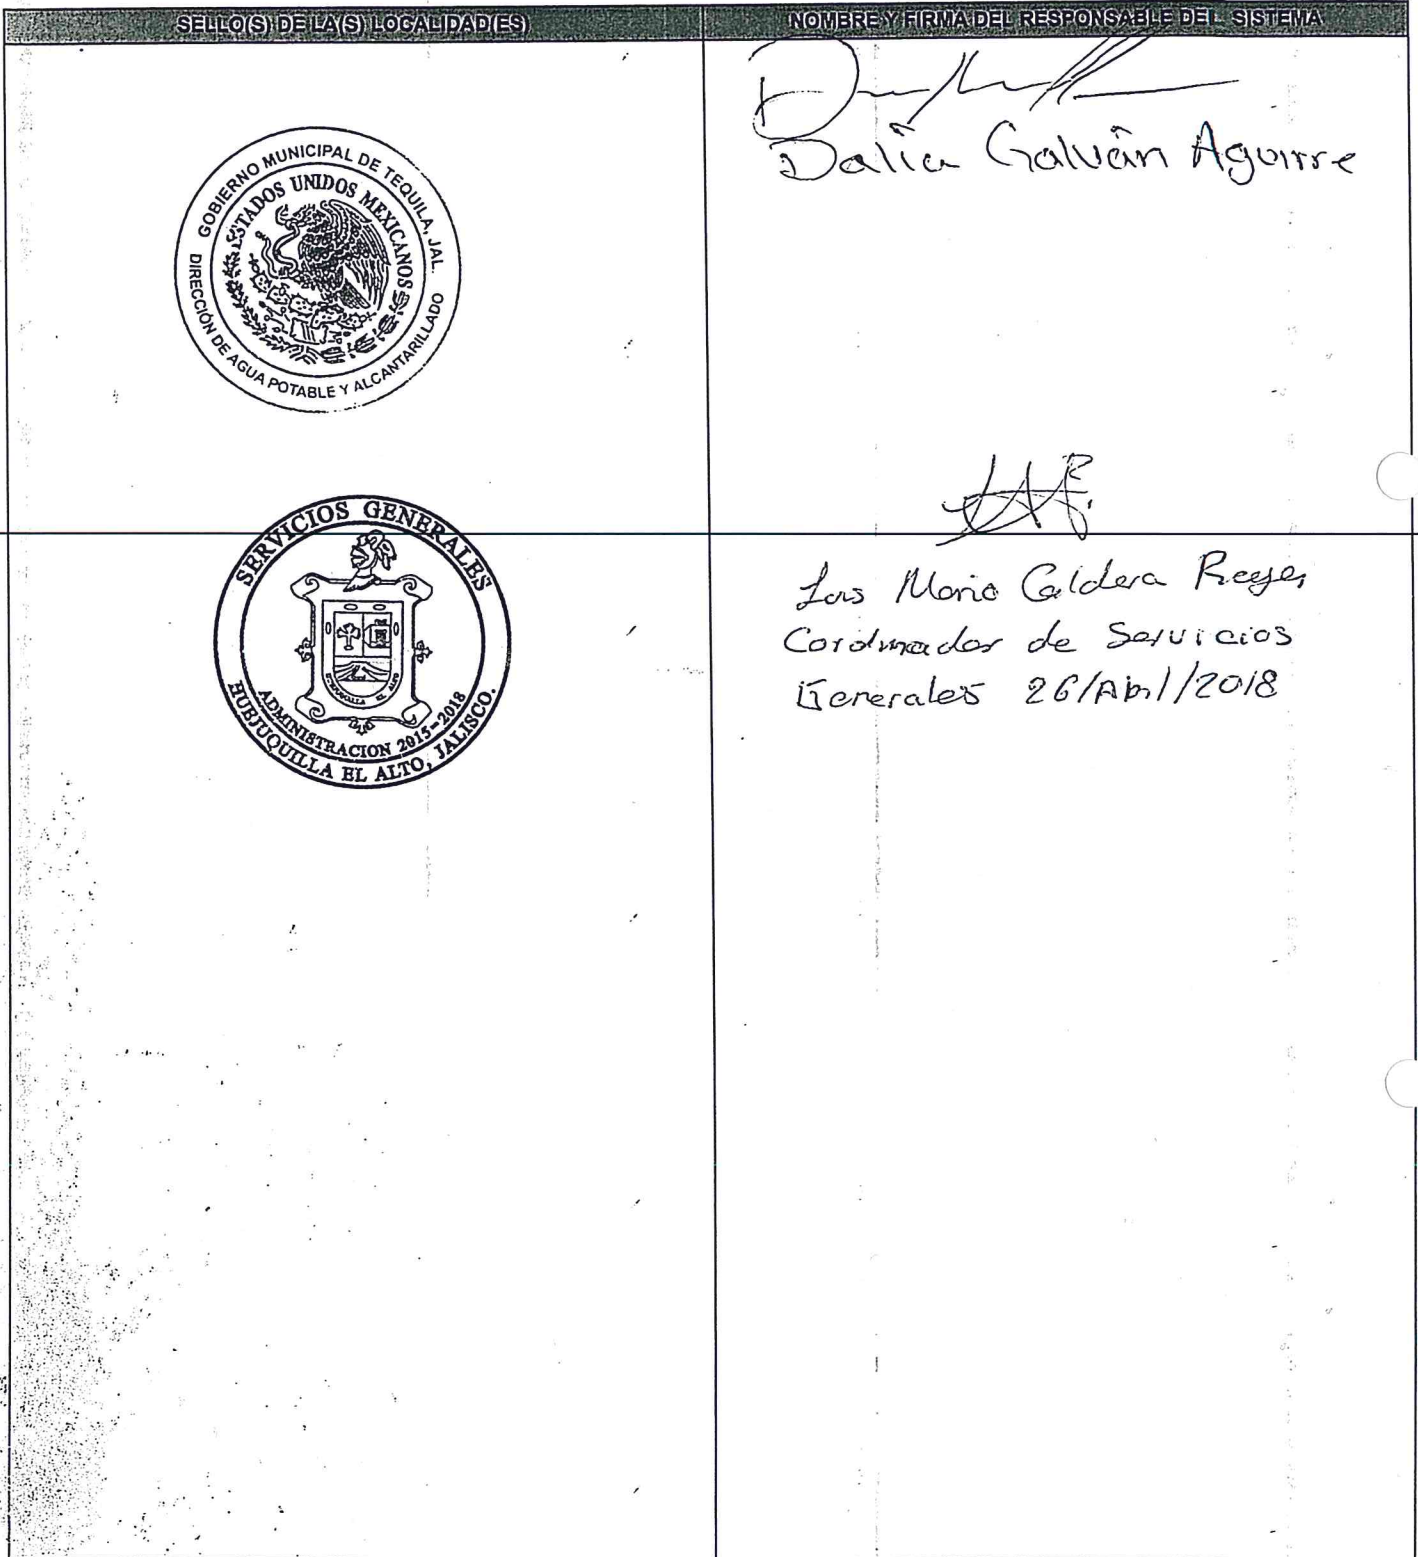 SELLO(S) DE LA(S) LOCALIDAD(ES)
NOMBRE Y FIRMA DEL RESPONSABLE DEL SISTEMA
GOBIERNO MUNICIPAL DE TEQUILA, JAL.
ESTADOS UNIDOS MEXICANOS
DIRECCIÓN DE AGUA POTABLE Y ALCANTARILLADO
Dalia Galván Aguirre
SERVICIOS GENERALES
ADMINISTRACION 2015-2018
HUEJUQUILLA EL ALTO, JALISCO.
Luis Mario Caldera Reyes
Cordinador de Servicios
Generales 26/Abril/2018